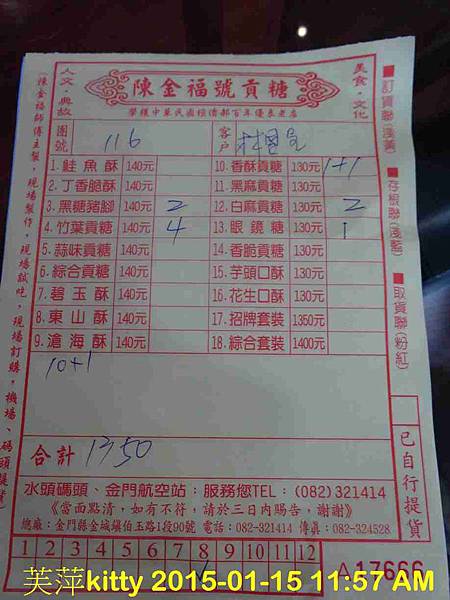 人文·典故
陳金福號貢糖
美食·文化
榮獲中華民國經濟部百年優良老店
團號 116 客户
1. 鮭魚酥 140元 10. 香酥貢糖 130元 1+1
2. 丁香脆酥 140元 11. 黑麻貢糖 130元
3. 黑糖豬腳 140元 2 12. 白麻貢糖 130元 2
4. 竹葉貢糖 140元 4 13. 眼鏡糖 130元 1
5. 蒜味貢糖 140元 14. 香脆貢糖 130元
6. 綜合貢糖 140元 15. 芋頭口酥 130元
7. 碧玉酥 140元 16. 花生口酥 130元
8. 東山酥 140元 17. 招牌套裝 1350元
9. 滄海酥 140元 18. 綜合套裝 1400元
10+1
合計 1350
水頭碼頭、金門航空站：服務您TEL：(082)321414
《當面點清，如有不符，請於三日內賜告，謝謝》
總廠：金門縣金城鎮伯玉路1段90號 電話：082-321414 傳真：082-324528
1 2 3 4 5 6 7 8 9 10 11 12
A 17666
陳金福師傅主製，現場製作，現場試吃，現場訂購，機場、碼頭
■訂貨聯(淺黃) ■存根聯(淺藍) ■取貨聯(粉紅)
已自行提貨
芙萍kitty 2015-01-15 11:57 AM